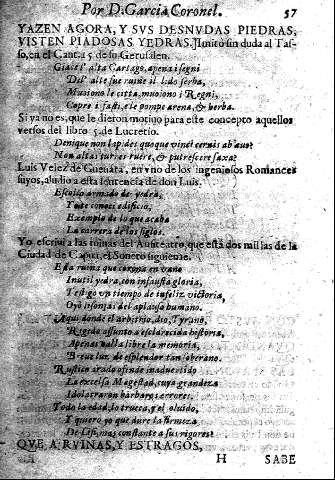 Por D. Garcia Coronel. 57
YAZEN AGORA, Y SVS DESNVDAS PIEDRAS,
VISTEN PIADOSAS YEDRAS. Imitò sin duda al Tas-
so, en el Canto 5. de su Gerusalen.
Giace l' alta Cartago, apena i segni
Del' alte sue ruine il lido serba,
Muoiono le citta, muoiono i Regni,
Copre i fasti, e le pompe arena, & herba.
Si ya no es, que le dieron motiuo para este concepto aquellos
versos del libro 5. de Lucrecio.
Denique non lapides quoque vinci cernis ab æuo?
Non altas turres ruere, & putrescere saxa?
Luis Velez de Gueuara, en vno de los ingeniosos Romances
suyos, aludio a esta sentencia de don Luis.
Escollo armado de yedra,
Yo te conoci edificio,
Exemplo de lo que acaba
La carrera de los siglos.
Yo escriui a las ruinas del Anfiteatro, que està dos millas de la
Ciudad de Capua, el Soneto siguiente.
Esta ruina que corona en vano
Inutil yedra, con infausta gloria,
Testigo vn tiempo de infeliz victoria,
Oyò lisonjas del aplauso humano.
Aqui donde el arbitrio, dio, Tyrano,
Regado assunto a esclarecida historia,
Apenas halla libre la memoria,
Breue luz de esplendor tan soberano.
Rustico arado ofende inaduertido
La excelsa Magestad, cuya grandeza
Idolatraron barbaros errores.
Todo la edad lo trueca, y el oluido,
Y quiero yo que dure la firmeza
De Lisi, mas constante a sus rigores?
QVE A RVINAS, Y ESTRAGOS,
H SABE